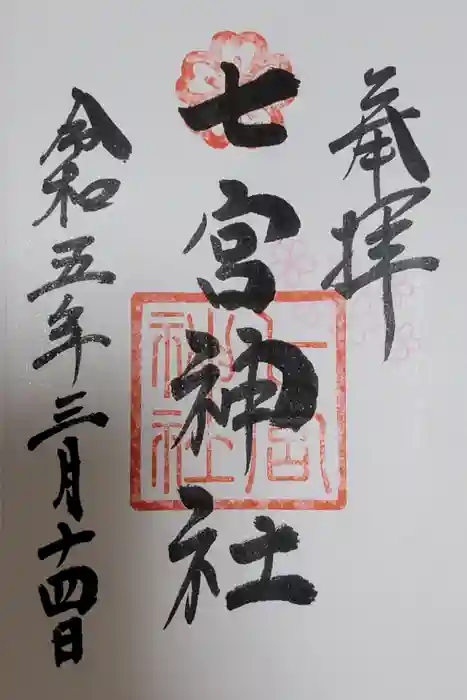 奉拝
七宮神社
七宮
神社
令和五年三月十四日